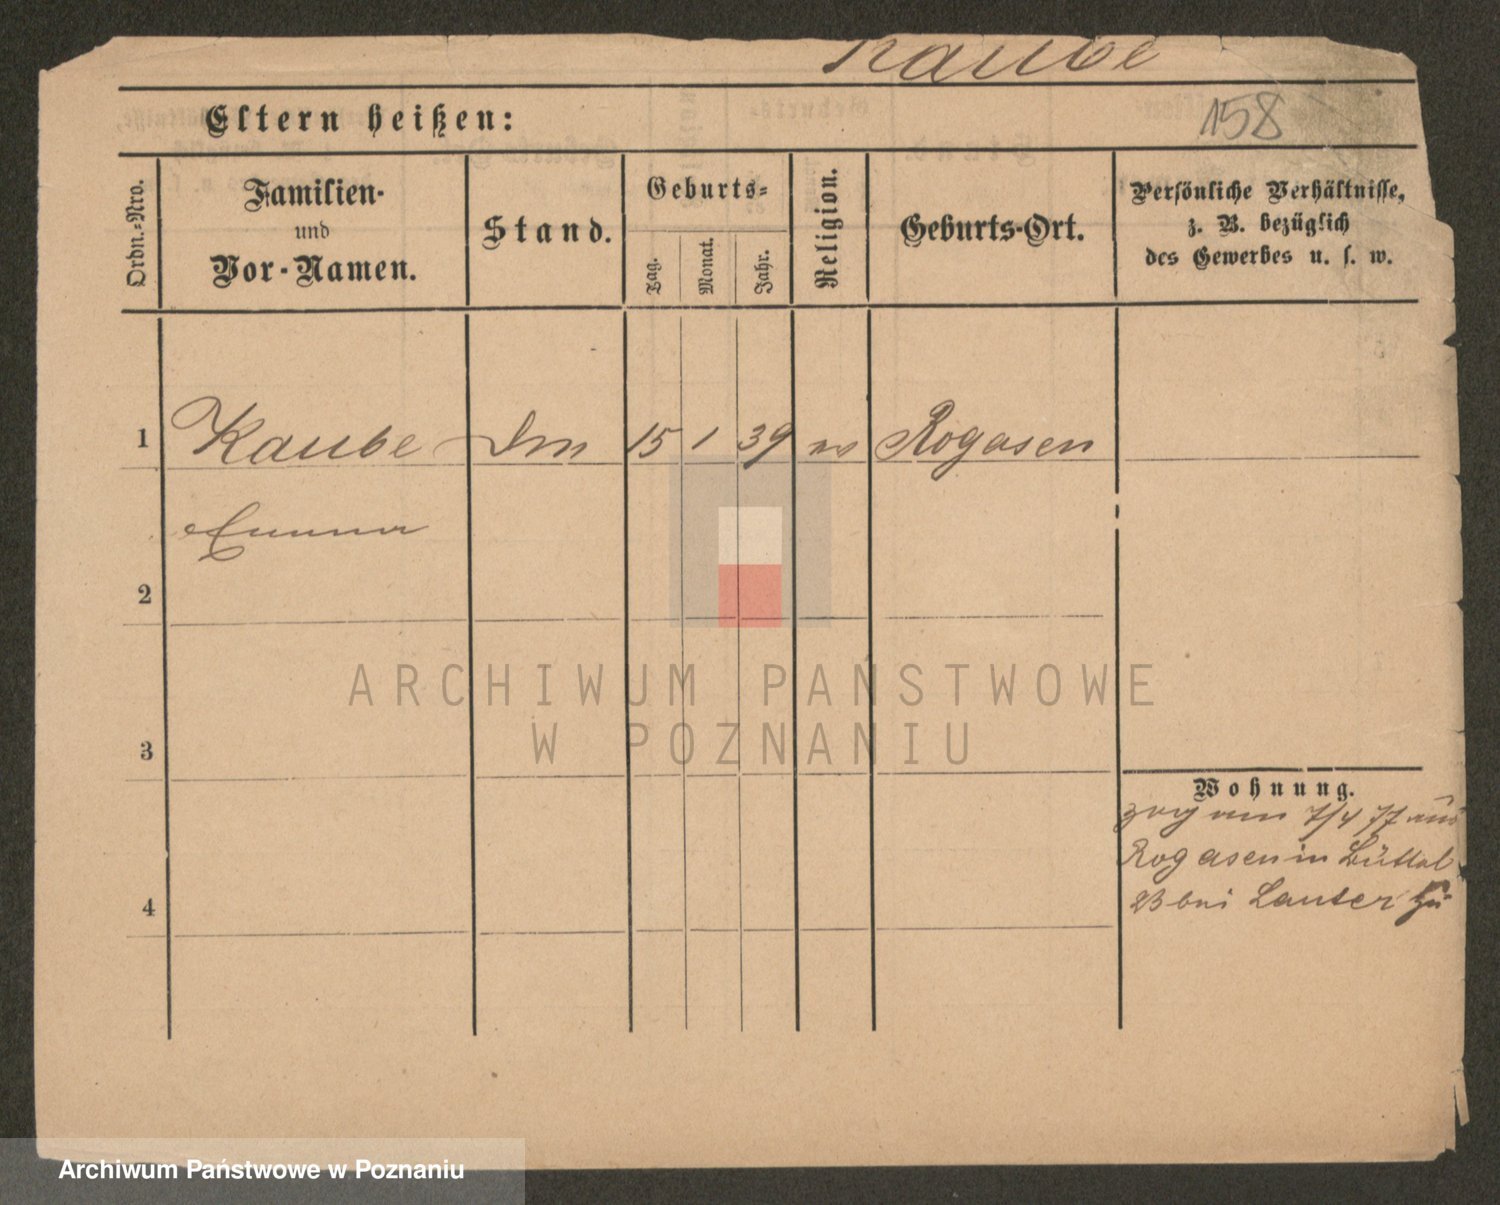 Kaube
158
Eltern heißen:
Ordn.-Nro.
Familien-
und
Vor-Namen.
Stand.
Geburts-
Tag.
Monat.
Jahr.
Religion.
Geburts-Ort.
Persönliche Verhältnisse,
z. B. bezüglich
des Gewerbes u. s. w.
1 Kaube 15 1 39 Rogasen
Emma
2
3
4
Wohnung.
zog am 7/4 77 aus
Rogasen in
23 bei Lauter zu
ARCHIWUM PAŃSTWOWE
W POZNANIU
Archiwum Państwowe w Poznaniu